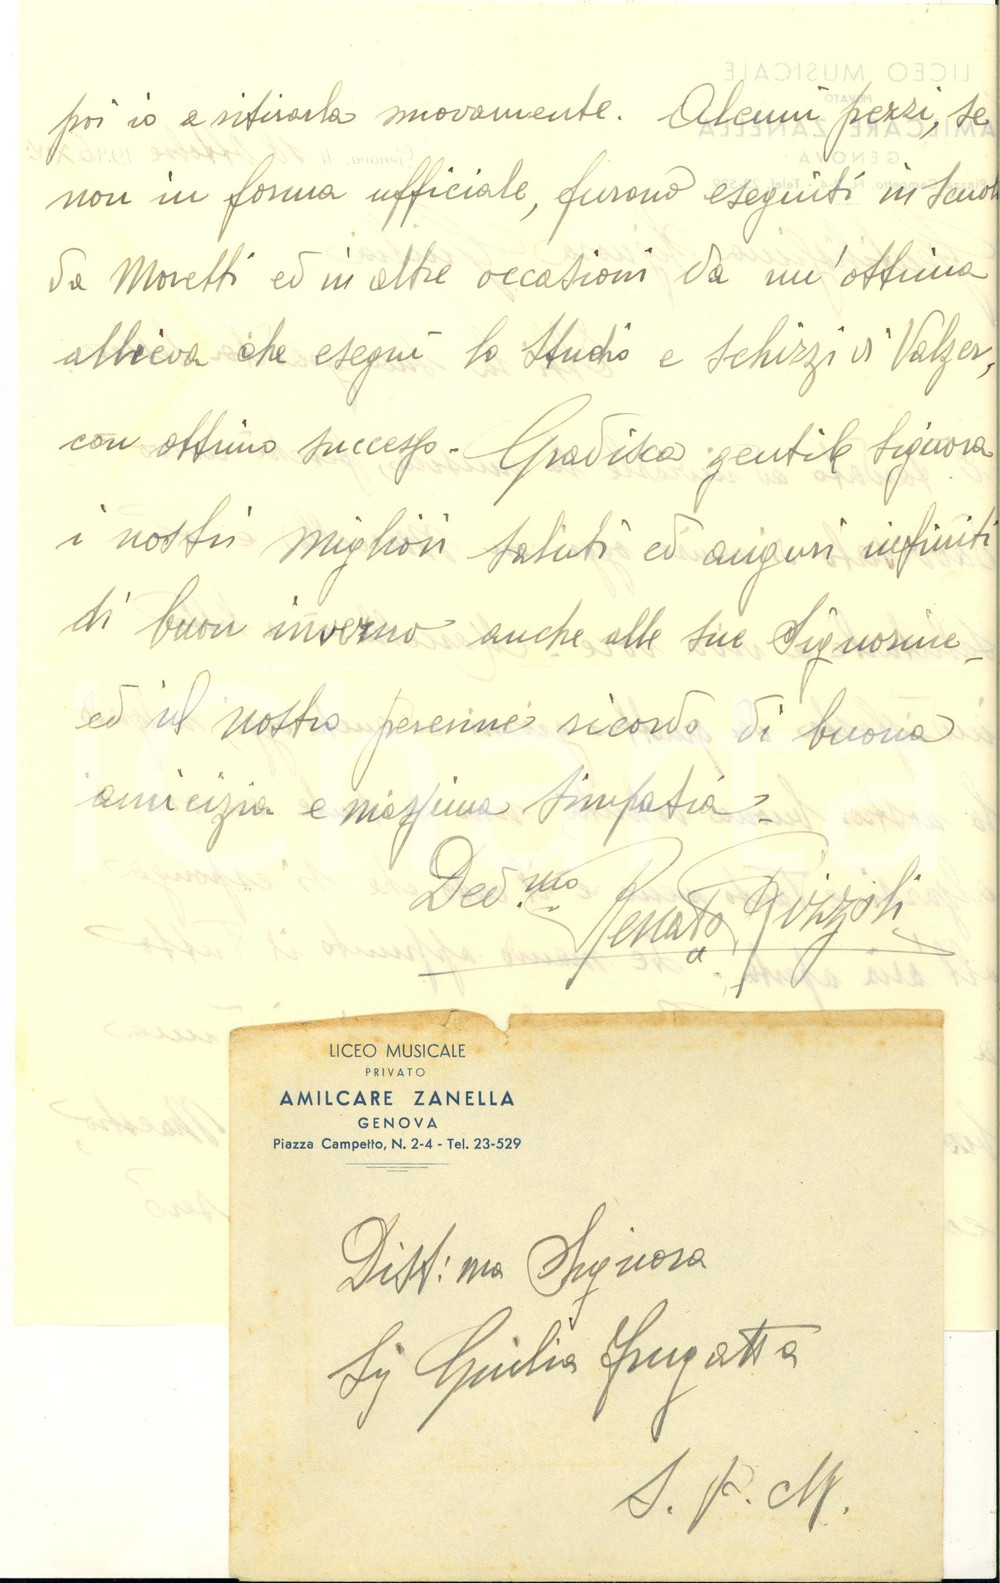 poi io a ritirarla nuovamente. Alcuni pezzi, se
non in forma ufficiale, furono eseguiti in Scuola
da Moretti ed in altre occasioni da un'ottima
allieva che eseguì lo Studio e Schizzi di Valzer,
con ottimo successo - Gradisca gentile Signora
i nostri migliori saluti ed auguri infiniti
di buon inverno anche alle sue Signorine -
ed il nostro perenne ricordo di buona
amicizia e massima simpatia -
Ded.mo Renato Rizzoli
LICEO MUSICALE
PRIVATO
AMILCARE ZANELLA
GENOVA
Piazza Campetto, N. 2-4 - Tel. 23-529
Dist:ma Signora
Sig Giulia Frugatta
S. P. M.